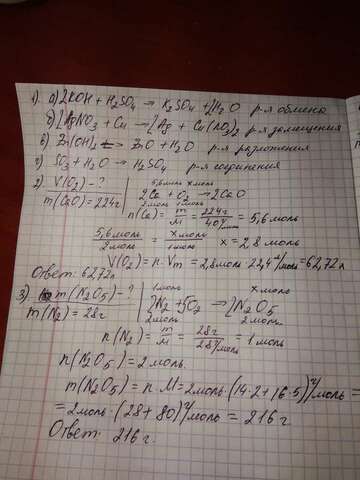 1). а) 2KOH + H₂SO₄ → K₂SO₄ + 2H₂O р-я обмена
б) 2AgNO₃ + Cu → 2Ag + Cu(NO₃)₂ р-я замещения
в) Zn(OH)₂ → ZnO + H₂O р-я разложения
г) SO₃ + H₂O → H₂SO₄ р-я соединения
2) V(O₂) - ?
5,6моль хмоль
m(CaO) = 224г
2Ca + O₂ → 2CaO
2моль 1моль
n(Ca) = m/M = 224г/40г/моль = 5,6 моль
5,6моль/2моль = хмоль/1моль х = 2,8моль
V(O₂) = n · Vm = 2,8моль · 22,4 л/моль = 62,72л
Ответ: 62,72л.
3) m(N₂O₅) - ?
1моль хмоль
m(N₂) = 28г
2N₂ + 5O₂ → 2N₂O₅
2моль 2моль
n(N₂) = m/M = 28г/28г/моль = 1моль
n(N₂O₅) = 2моль.
m(N₂O₅) = n · M = 2моль · (14·2 + 16·5) г/моль =
= 2моль · (28 + 80) г/моль = 216г
Ответ: 216 г.